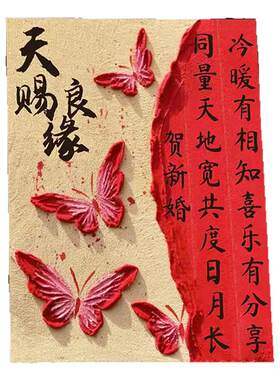 天赐良缘
冷暖有相知喜乐有分享
同量天地宽共度日月长
贺新婚